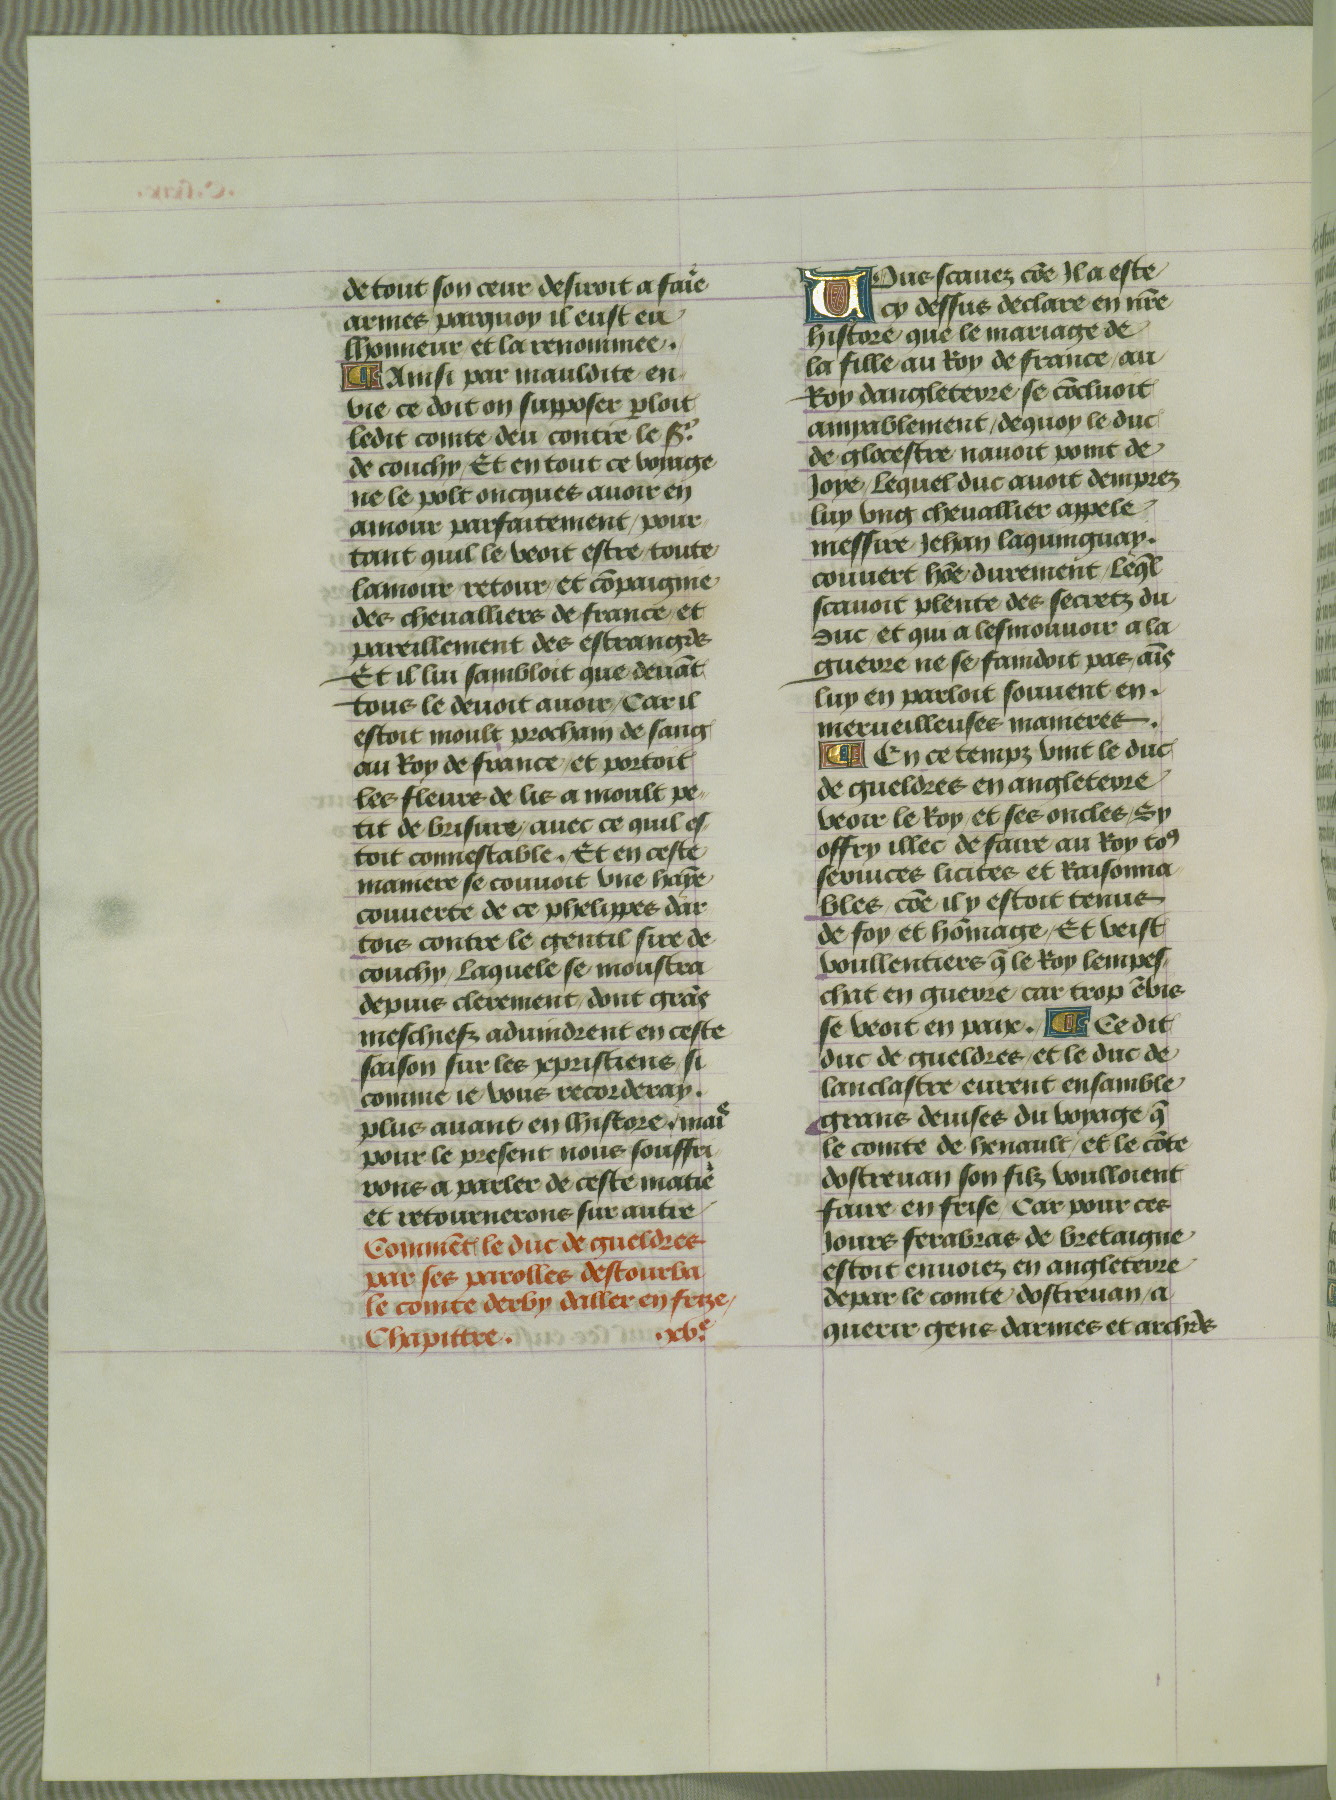 de tout son ceur desiroit a faire
armes parquoy il eust eu
lhonneur et la renommee.
¶ Ainsi par mauldite en
vie ce doit on supposer ploit
ledit comte deu contre le sr.
de couchy / Et en tout ce voyage
ne le polt oncques avoir en
amour parfaitement / pour
tant quil le veoit estre toute
lamour retour / et cõpaignie
des chevalliers de france / et
pareillement des estrangrs
Et il lui sambloit que devãt
tous le devoit avoir / Car il
estoit moult prochain de sang
au Roy de france / et portoit
les fleurs de lis a moult pe
tit de brisure / avec ce quil es
toit connestable. Et en ceste
maniere se couvoit vne hayne
couverte de ce phelippes dar
tois contre le gentil sire de
couchy / Laquele se moustra
depuis clerement / dont grãs
meschiefz advindrent en ceste
saison sur les xpristiens / si
comme ie vous recorderay.
plus avant en lhistore. mais
pour le present nous souffri
rons a parler de ceste matiere
et retournerons sur autre /
Commẽt le duc de gueldres
par ses parolles destourba
le comte derby daller en frize /
Chapittre. .xve.
Vous scavez cõe Il a este
cy dessus declare en nr̃e
histore que le mariage de
la fille au Roy de france / au
Roy dangleterre se cõcluoit
amyablement / dequoy le duc
de glocestre navoit point de
Joye / Lequel duc avoit demprez
luy vng chevallier appele
messire Jehan laquinguay.
couvert hõe durement / Leq̃l
scavoit plente des secretz du
Duc et qui a lesmouvoir a la
guerre ne se faindoit pas / aĩs
luy en parloit souvent en.
merveilleuses manieres.
¶ En ce tempz vint le duc
de gueldres en angleterre
veoir le Roy / et ses oncles / Sy
offry illec de faire au Roy to9
services licites et Raisonna
bles / cõe il y estoit tenus
de foy et hõmage / Et veist
voullentiers q̃ le Roy lempes
chat en guerre / car trop ẽvis
se veoit en paix. ¶ Ce dit
duc de gueldres / et le duc de
lanclastre eurent ensamble
grans devises du voyage q̃
le comte de henault / et le cõte
dostrevan son filz voulloient
faire en frise / Car pour ces
Jours ferabras de bretaigne
estoit envoiez en angleterre
depar le comte dostrevan / a
querir gens darmes et archrs